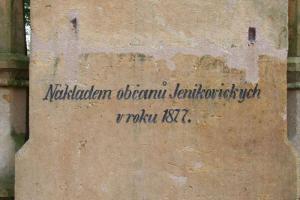 Nákladem občanů Jeníkovických
v roku 1877.